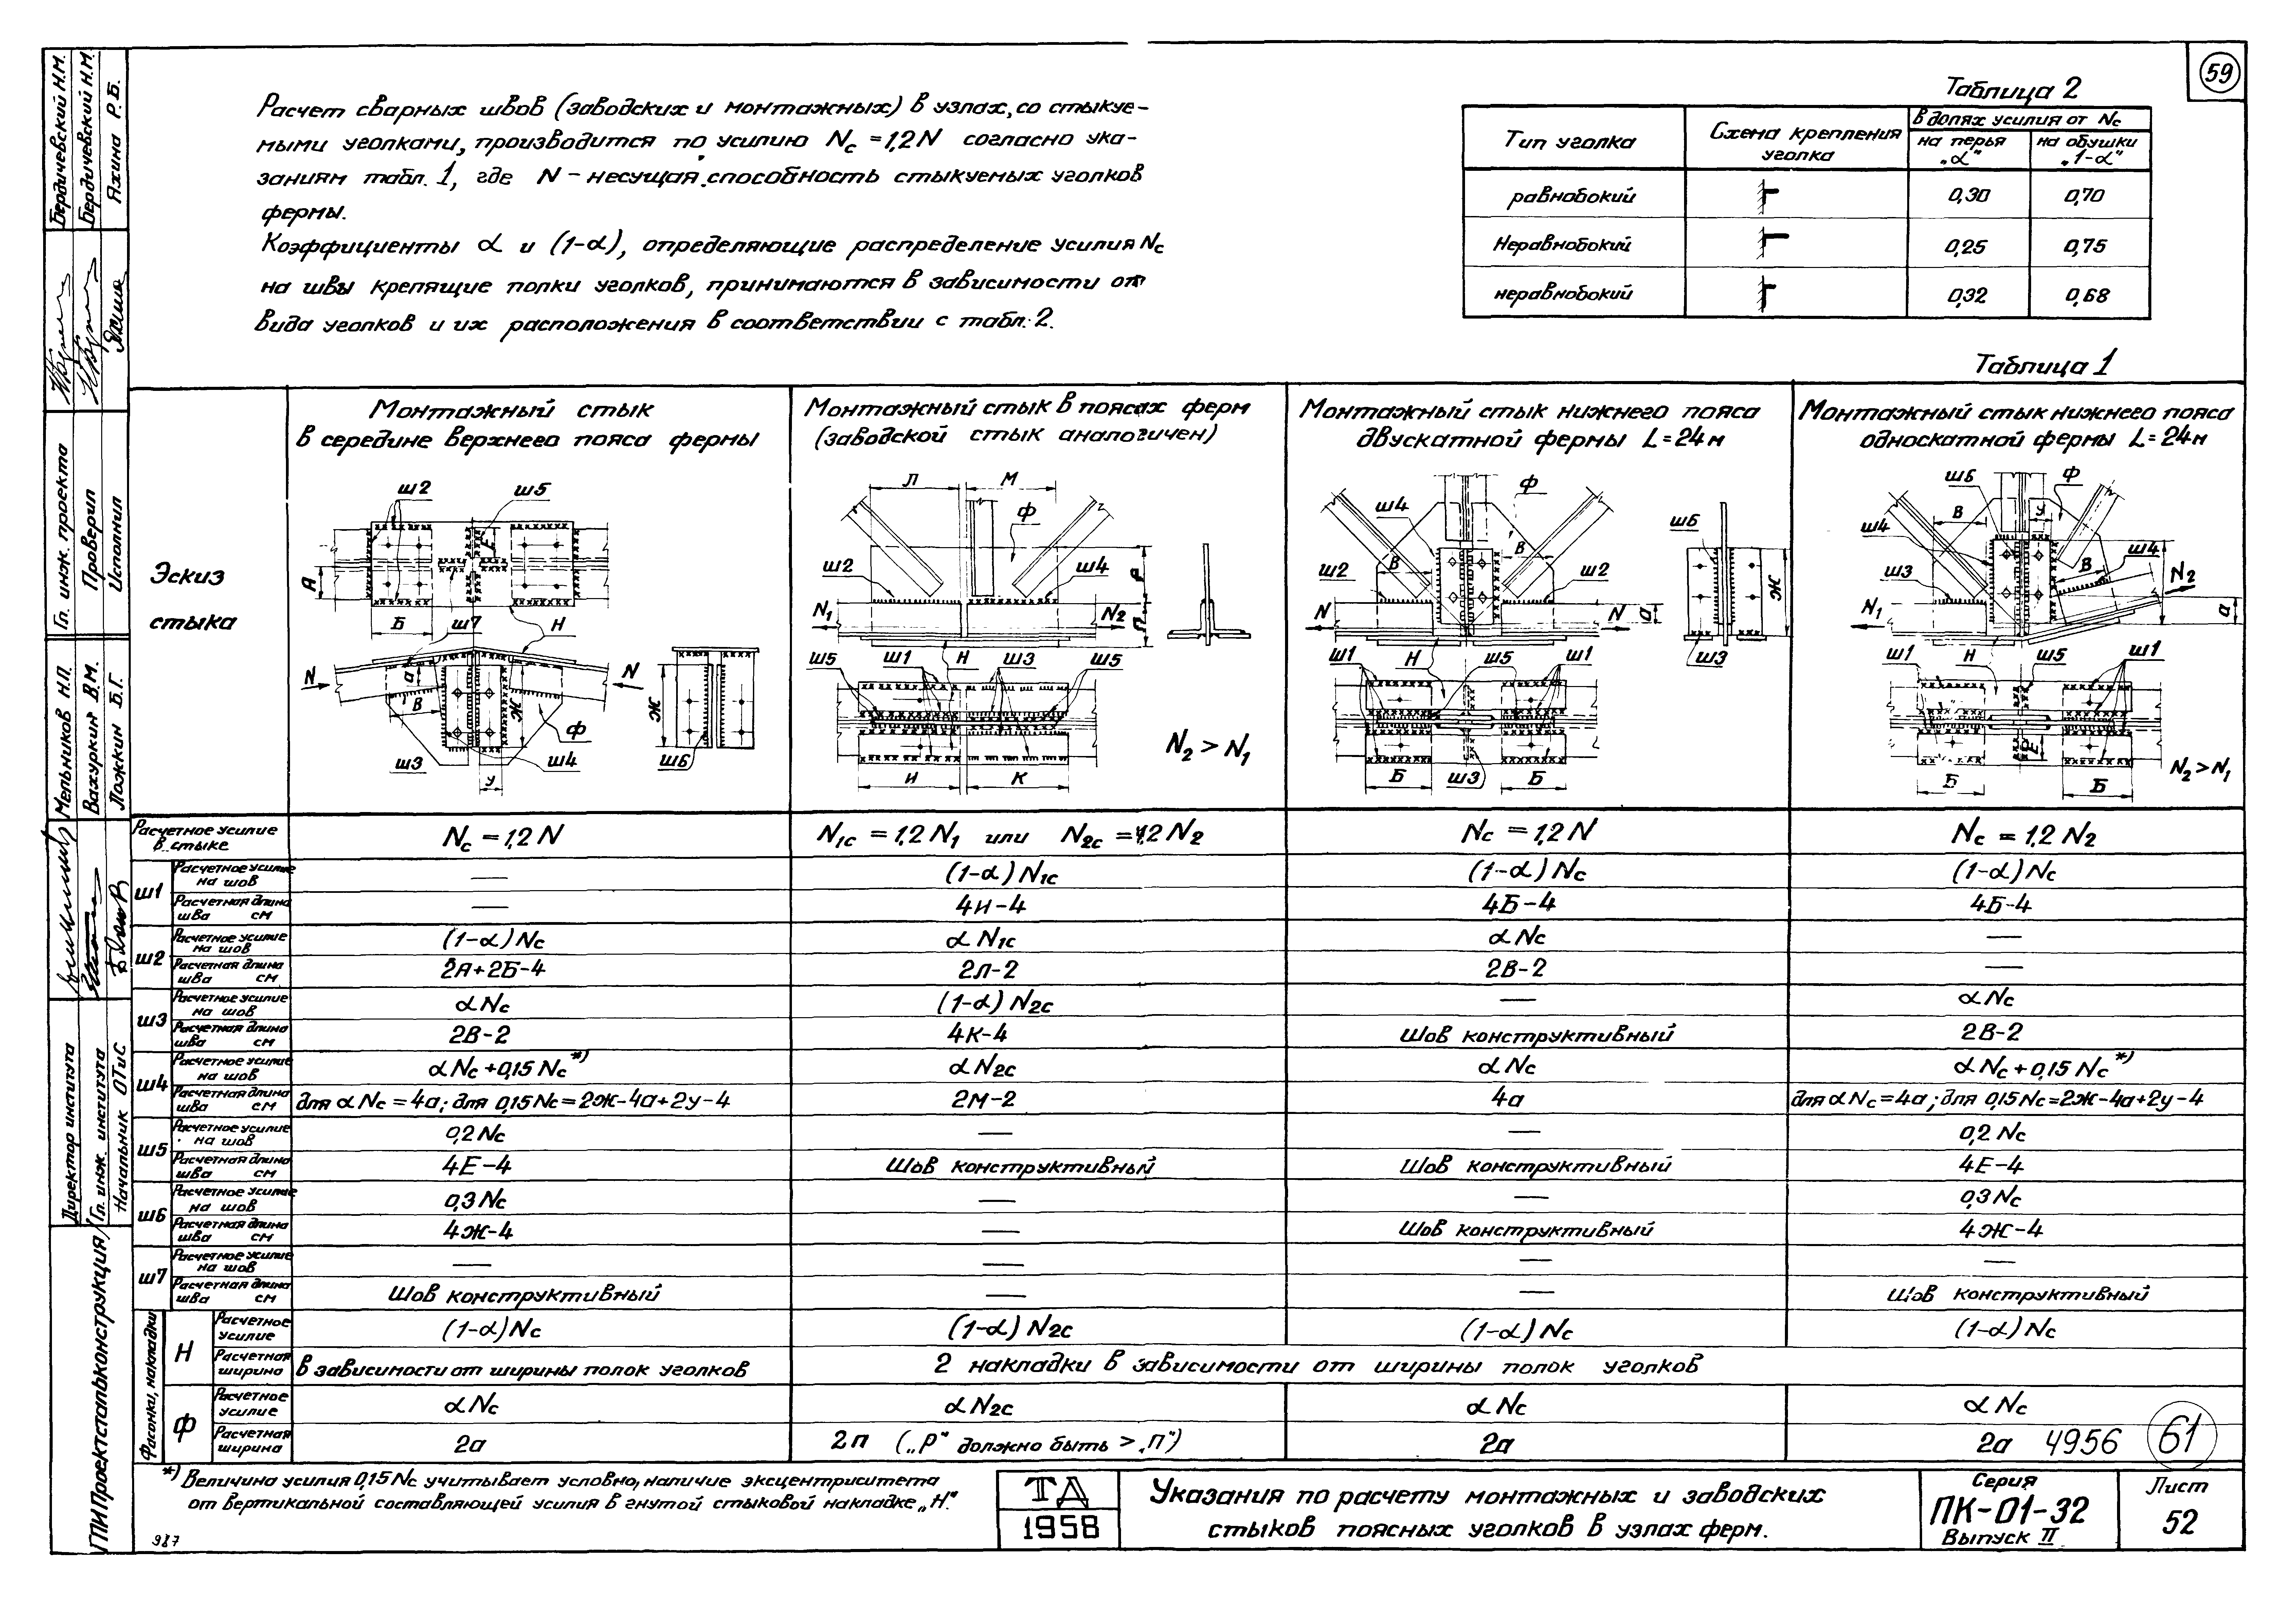 59
Расчет сварных швов (заводских и монтажных) в узлах, со стыкуе-
мыми уголками, производится по усилию Nc = 1,2 N согласно ука-
заниям табл. 1, где N – несущая способность стыкуемых уголков
фермы.
Коэффициенты α и (1-α), определяющие распределение усилия Nc
на швы крепящие полки уголков, принимаются в зависимости от
вида уголков и их расположения в соответствии с табл. 2.
Таблица 2
Тип уголка
Схема крепления уголка
в долях усилия от Nc
на перья „α“
на обушки „1-α“
равнобокий 0,30 0,70
Неравнобокий 0,25 0,75
неравнобокий 0,32 0,68
Таблица 1
Эскиз стыка
Монтажный стык
в середине верхнего пояса фермы
ш2 ш5
А Е
Б ш7 Н
N а В Ж ф N Ж
ш3 ш4 ш6
У
Монтажный стык в поясах ферм
(заводской стык аналогичен)
Л М
ф
ш2 ш4 Р
N1 N2 П
ш5 ш1 Н ш3 ш5
И К
N2 > N1
Монтажный стык нижнего пояса
двускатной фермы L = 24 м
ф
ш4 ш6
ш2 В В ш2 Ж
N N а
ш1 Н ш5 ш1 ш3
Б ш3 Б
Монтажный стык нижнего пояса
односкатной фермы L = 24 м
ш6 ф
В У
ш4 ш4
ш3 В N2
N1 а
ш1 Н ш5 ш1
Е
Б Б
N2 > N1
Расчетное усилие в стыке Nc = 1,2 N N1c = 1,2 N1 или N2c = 1,2 N2 Nc = 1,2 N Nc = 1,2 N2
ш1 Расчетное усилие на шов — (1-α) N1c (1-α) Nc (1-α) Nc
Расчетная длина шва см — 4И-4 4Б-4 4Б-4
ш2 Расчетное усилие на шов (1-α) Nc α N1c α Nc —
Расчетная длина шва см 2А+2Б-4 2Л-2 2В-2 —
ш3 Расчетное усилие на шов α Nc (1-α) N2c — α Nc
Расчетная длина шва см 2В-2 4К-4 Шов конструктивный 2В-2
ш4 Расчетное усилие на шов α Nc + 0,15 Nc *) α N2c α Nc α Nc + 0,15 Nc *)
Расчетная длина шва см для α Nc = 4а; для 0,15 Nc = 2Ж-4а+2у-4 2М-2 4а для α Nc = 4а; для 0,15 Nc = 2Ж-4а+2у-4
ш5 Расчетное усилие на шов 0,2 Nc — — 0,2 Nc
Расчетная длина шва см 4Е-4 Шов конструктивный Шов конструктивный 4Е-4
ш6 Расчетное усилие на шов 0,3 Nc — — 0,3 Nc
Расчетная длина шва см 4Ж-4 — Шов конструктивный 4Ж-4
ш7 Расчетное усилие на шов — — — —
Расчетная длина шва см Шов конструктивный — — Шов конструктивный
Фасонки, накладки
Н Расчетное усилие (1-α) Nc (1-α) N2c (1-α) Nc (1-α) Nc
Расчетная ширина в зависимости от ширины полок уголков 2 накладки в зависимости от ширины полок уголков
Ф Расчетное усилие α Nc α N2c α Nc α Nc
Расчетная ширина 2а 2п („Р“ должно быть > „П“) 2а 2а
4956 61
*) Величина усилия 0,15 Nc учитывает условно, наличие эксцентриситета
от вертикальной составляющей усилия в гнутой стыковой накладке „Н“.
987
ТД
1958
Указания по расчету монтажных и заводских
стыков поясных уголков в узлах ферм.
Серия
ПК-01-32
Выпуск II
Лист
52
Гл. инж. проекта Бердичевский Н.М.
Проверил Бердичевский Н.М.
Исполнил Яхина Р.Б.
Директор института Мельников Н.П.
Гл. инж. института Вахуркин В.М.
Начальник ОТиС Ложкин Б.Г.
ГПИ Проектстальконструкция